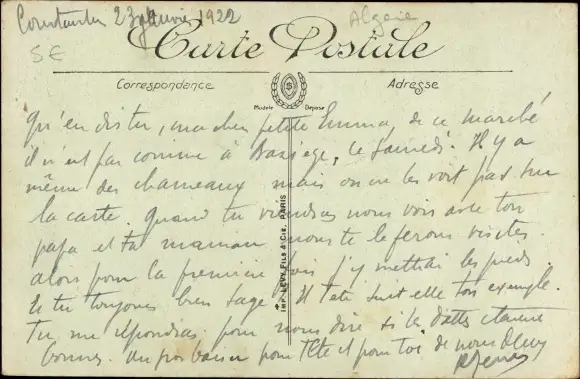 Constantine 23 Janvier 1922
Algérie
SE
Carte Postale
Correspondance
Adresse
Modèle Déposé
S
Qu'en dis tu, ma chère petite Emma, de ce marché
il n'est pas comme à Baziège, le samedi. Il y a
même des chameaux mais on ne les voit pas sur
la carte. Quand tu viendras nous voir avec ton
papa et ta maman nous te le ferons visiter.
alors pour la première fois j'y mettrai les pieds.
Es tu toujours bien sage suit elle ton exemple.
Tu me répondras pour nous dire si les dattes étaient
bonnes. un gros baiser pour et pour toi de nous deux
IMP. LEVY FILS & CIE. PARIS